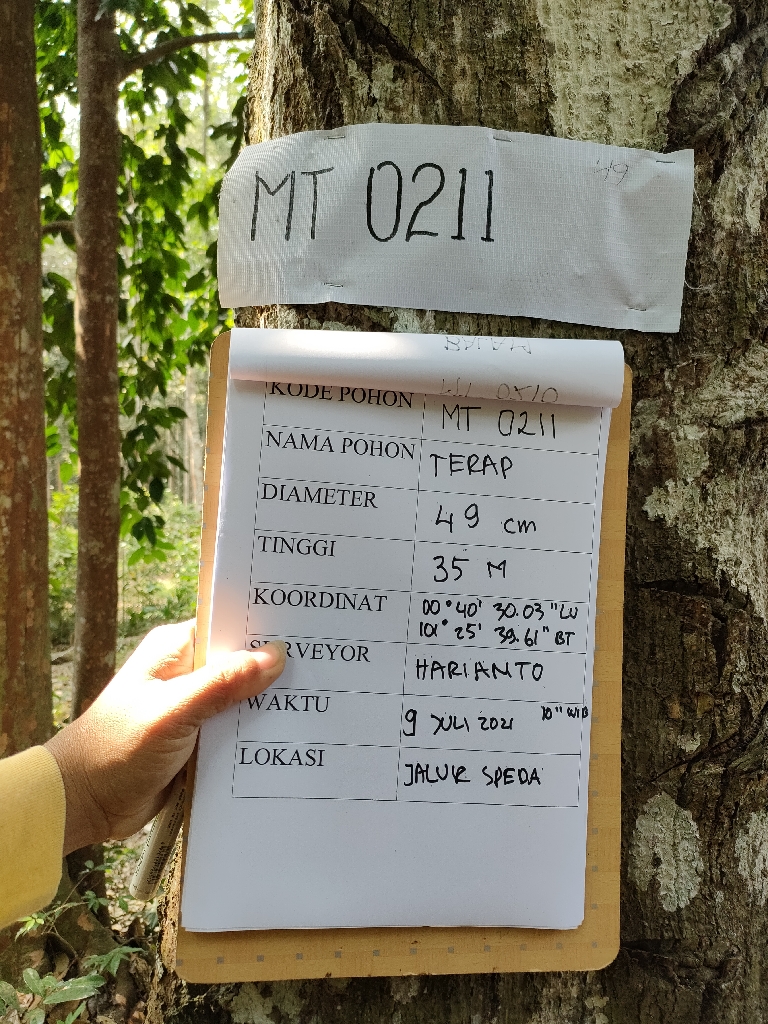 MT 0211
49
KODE POHON MT 0211
NAMA POHON TERAP
DIAMETER 49 cm
TINGGI 35 M
KOORDINAT 00° 40' 30.03" LU
101° 25' 39.61" BT
SURVEYOR HARIANTO
WAKTU 9 JULI 2021 10" WIB
LOKASI JALUR SPEDA